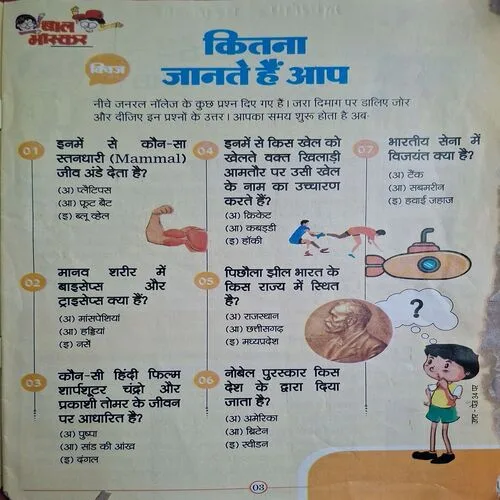 बाल
भास्कर
क्विज
कितना
जानते हैं आप
नीचे जनरल नॉलेज के कुछ प्रश्न दिए गए हैं। जरा दिमाग पर डालिए जोर
और दीजिए इन प्रश्नों के उत्तर। आपका समय शुरू होता है अब-
01
इनमें से कौन-सा
स्तनधारी (Mammal)
जीव अंडे देता है?
(अ) प्लैटिपस
(आ) फ्रूट बैट
(इ) ब्लू व्हेल
02
मानव शरीर में
बाइसेप्स और
ट्राइसेप्स क्या हैं?
(अ) मांसपेशियां
(आ) हड्डियां
(इ) नसें
03
कौन-सी हिंदी फिल्म
शार्पशूटर चंद्रो और
प्रकाशी तोमर के जीवन
पर आधारित है?
(अ) पुष्पा
(आ) सांड की आंख
(इ) दंगल
04
इनमें से किस खेल को
खेलते वक्त खिलाड़ी
आमतौर पर उसी खेल
के नाम का उच्चारण
करते हैं?
(अ) क्रिकेट
(आ) कबड्डी
(इ) हॉकी
05
पिछौला झील भारत के
किस राज्य में स्थित
है?
(अ) राजस्थान
(आ) छत्तीसगढ़
(इ) मध्यप्रदेश
06
नोबेल पुरस्कार किस
देश के द्वारा दिया
जाता है?
(अ) अमेरिका
(आ) ब्रिटेन
(इ) स्वीडन
07
भारतीय सेना में
विजयंत क्या है?
(अ) टैंक
(आ) सबमरीन
(इ) हवाई जहाज
?
03